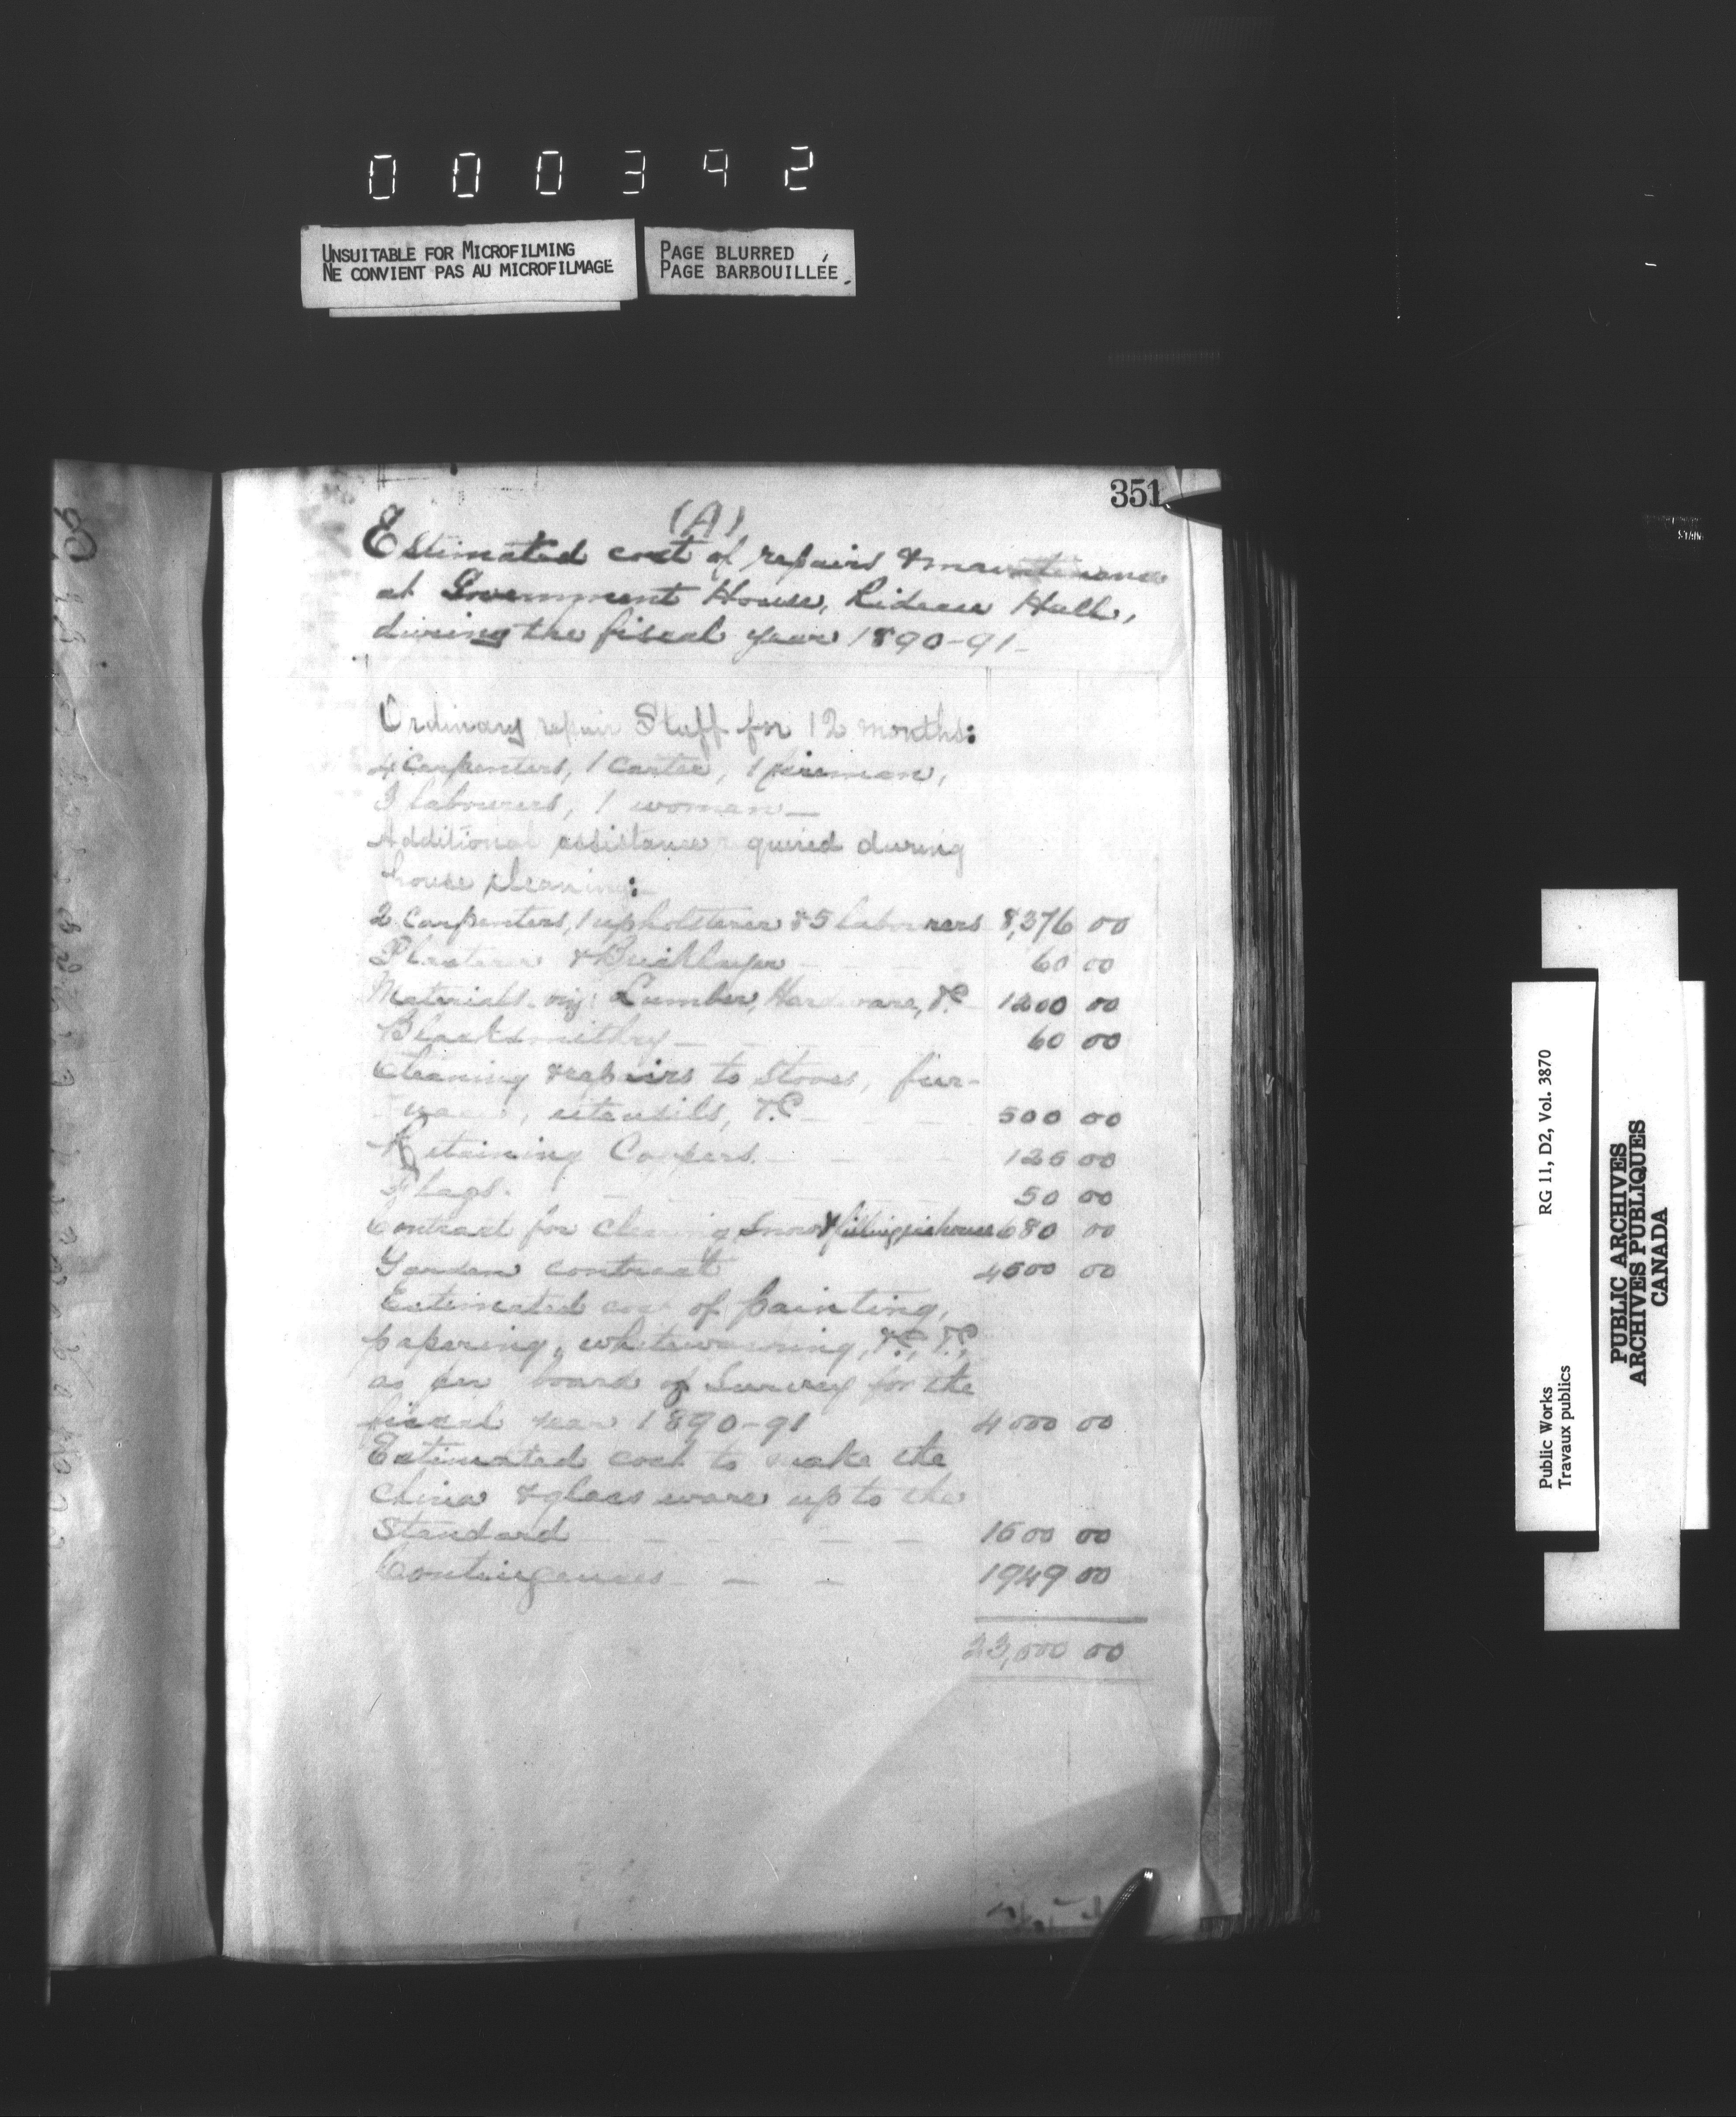 000392
UNSUITABLE FOR MICROFILMING
NE CONVIENT PAS AU MICROFILMAGE
PAGE BLURRED
PAGE BARBOUILLÉE.
351
(A)
Estimated cost of repairs & maintenance
at Government House, Rideau Hall,
during the fiscal year 1890-91-
Ordinary repair Staff for 12 months:
4 Carpenters, 1 carter, 1 fireman,
3 labourers, 1 woman—
Additional assistance required during
house cleaning:
2 Carpenters, 1 upholsterer & 5 labourers 8,376 00
Plasterer & Bricklayer - 60 00
Materials. viz: Lumber, Hardware, &c 1200 00
Blacksmithry - 60 00
Cleaning & repairs to Stoves, fur-
naces, utensils, &c - 500 00
Retaining Coopers. - 125 00
Flags. - 50 00
Contract for cleaning Snow & filling icehouse 680 00
Garden contract 4500 00
Estimated cost of painting,
papering, whitewashing, &c., &c.,
as per board of Survey for the
fiscal year 1890-91 4000 00
Estimated cost to make the
china & glass ware up to the
Standard - 1500 00
Contingencies - - - 1949 00
23,000 00
RG 11, D2, Vol. 3870
Public Works
Travaux publics
PUBLIC ARCHIVES
ARCHIVES PUBLIQUES
CANADA